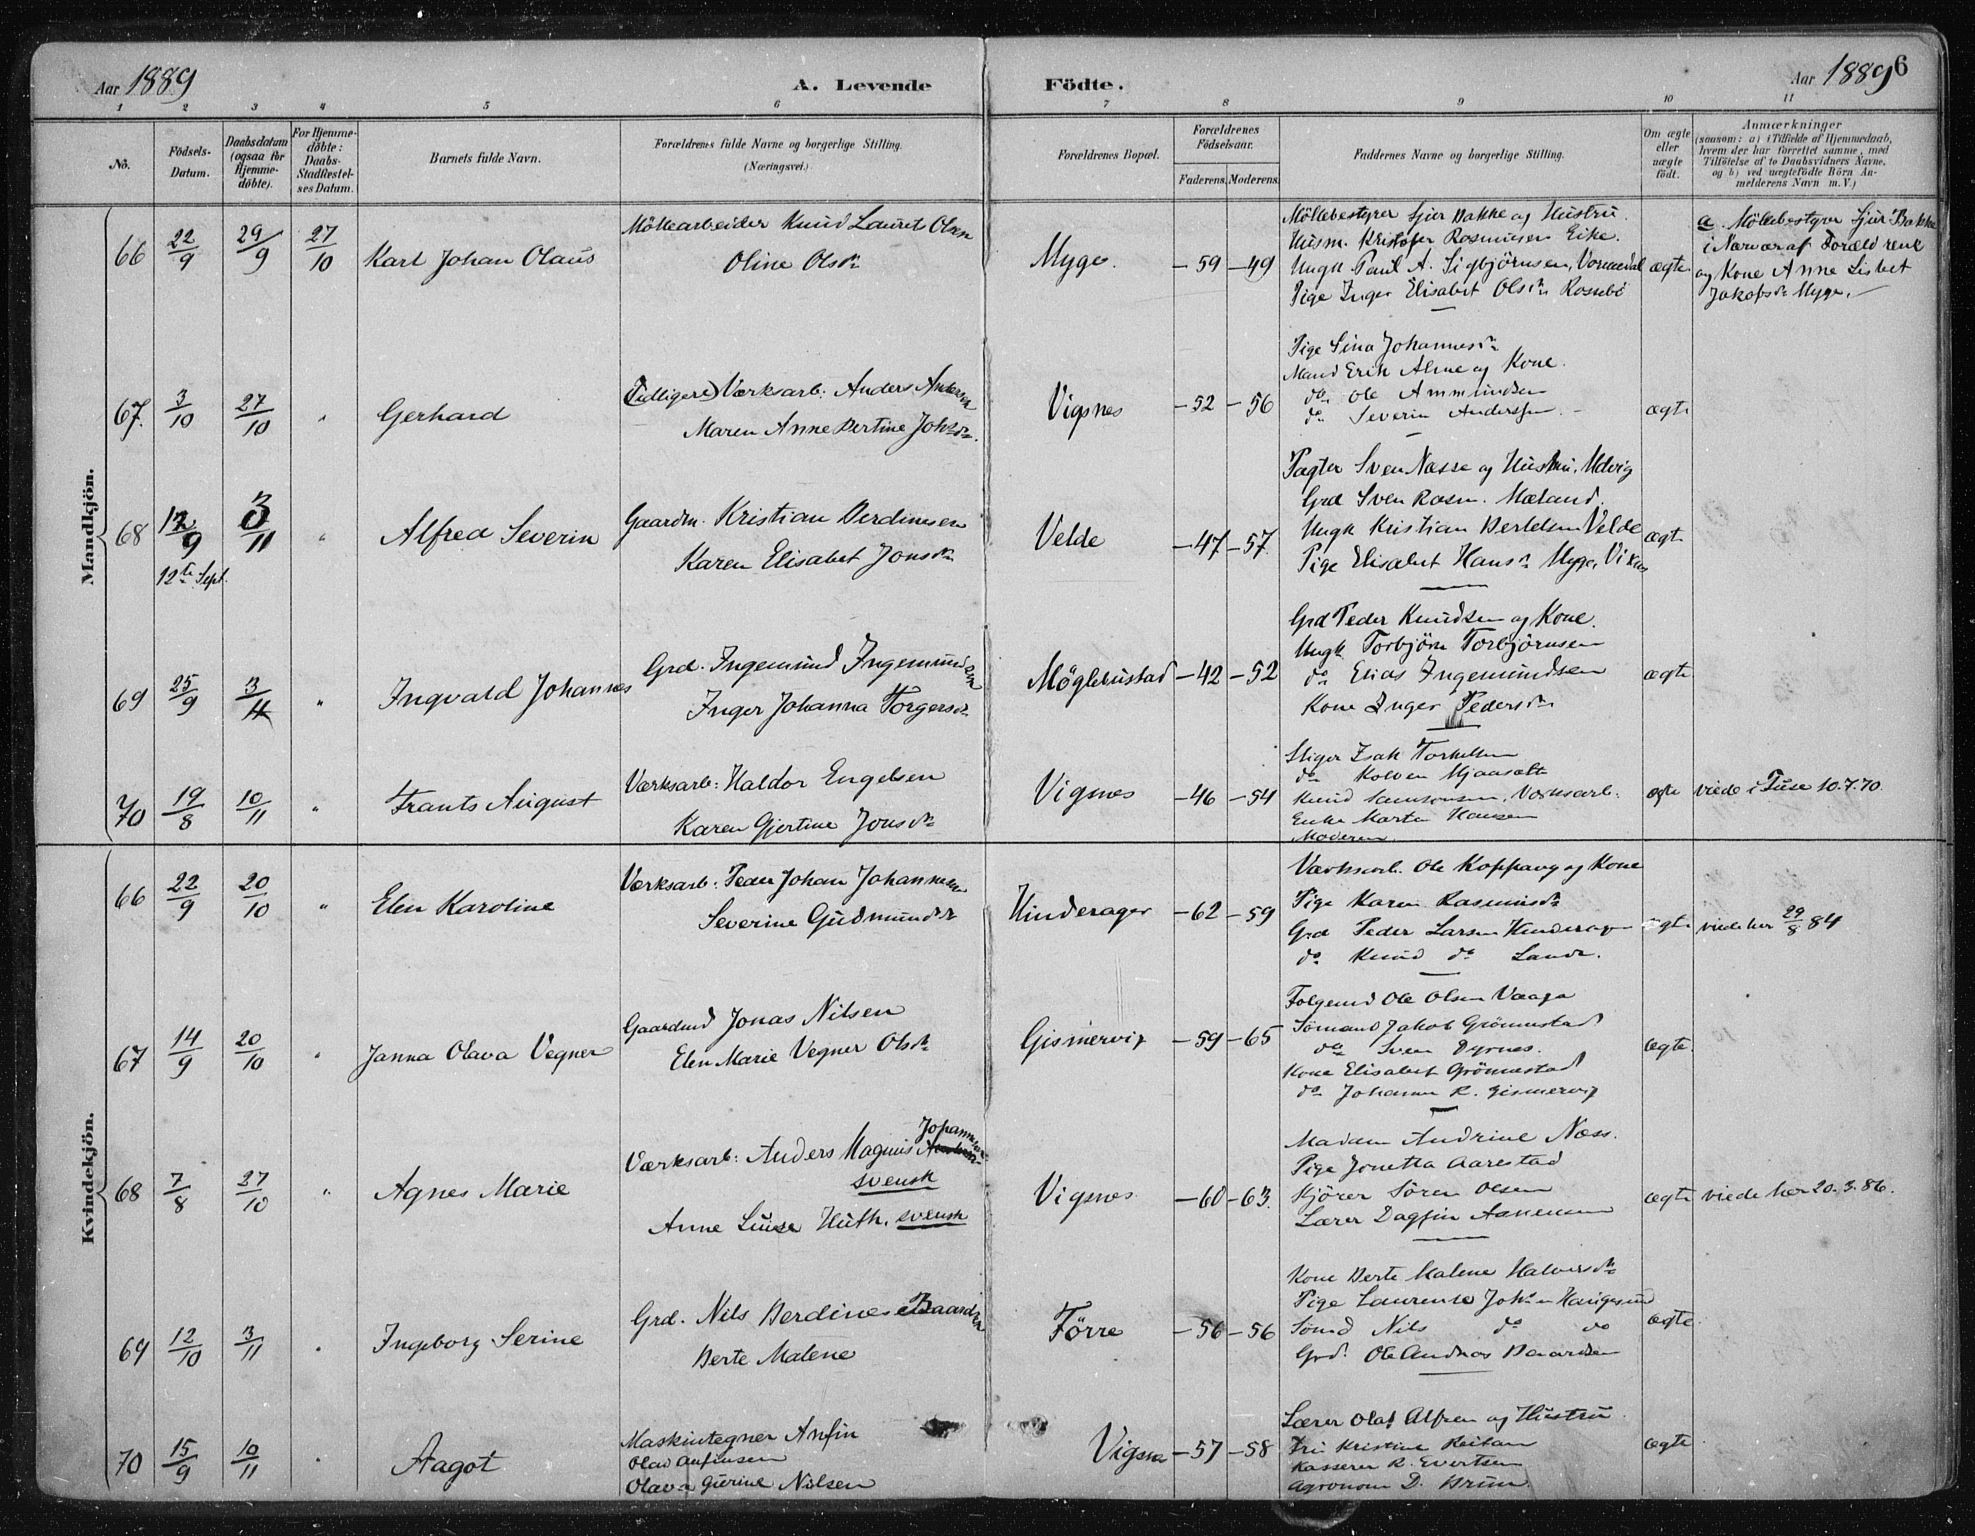 Aar 1889 A. Levende Födte. Aar 1889 6
1 2 3 4 5 6 7 8 9 10 11
No. Födsels-Datum. Daabsdatum (ogsaa for Hjemme-döbte). For Hjemme-döbte: Daabs-Stadfæstel-ses Datum. Barnets fulde Navn. Forældrenes fulde Navne og borgerlige Stilling. (Næringsvei.) Forældrenes Bopæl. Forældrenes Födselsaar. Faderens. Moderens. Faddernes Navne og borgerlige Stilling. Om ægte eller uægte födt. Anmærkninger (saasom: a) i Tilfælde af Hjemmedaab, hvem der har forrettet samme, med Tilföielse af to Daabsvidners Navne, og b) ved uægtefödte Börn Anmelderens Navn m. V.)
Mandkjön.
66 22/9 29/9 27/10 Karl Johan Olaus
Möllearbeider Knud Lauret Olsen
Oline Olsdr
Myge. -59 -49
Möllebestyrer Sjur Bakke og Hustru.
Husm. Kristofer Rasmusen Eike.
Ungk Paul A. Sigbjörnsen, Vormedal
Pige Inger Elisabet Olsdr Rossebö
ægte
a. Möllebestyrer Sjur Bakke
i Nærvær af Forældrene
og Kone Anne Lisbet
Jakobsdr Myge.
67. 3/10 27/10 " Gerhard
(Tidligere) Værksarb: Anders Andersen
Maren Anne Bertine Johsdr.
Vigsnes -52 -56
Pige Sina Johannesdr
Mand Erik Alme og Kone.
do. Ole Ammundsen
do Severin Anderssen.
ægte
68 12/9 3/11 " Alfred Severin
12te Sept.
Gaardm. Kristian Berdinesen
Karen Elisabet Jonsdr
Velde -47 -57
Pagter Sven Næsse og Hustru, Udvig
Grd Sven Rasm. Mæland.
Ungk Kristian Bertelsen Velde
Pige Elisabet Hansdr Myge, Viknes
ægte
69 25/9 3/11 " Ingvald Johannes
Grd. Ingemund Ingemundsen
Inger Johanna Torgersdr
Möglebustad -42 -52
Grd Peder Knudsen og Kone.
Ungk Torbjörn Torbjörnsen
do Elias Ingemundsen
Kone Inger Pedersdr
ægte
70 19/8 10/11 " Frants August
Værksarb: Haldor Engelsen
Karen Gjertine Jonsdr
Vigsnes -46 -54
Stiger Isak Torkelsen
do Kolven Mjaasalt
Knud Samsonsen, Værksarb.
Enke Marta Hansen
Moderen.
ægte viede i Tuse 10.7.70.
Kvindekjön.
66 22/9 20/10 " Elen Karoline
Værksarb: Peder Johan Johannesen
Severine Gudmundsdr
Hinderager -62 -59
Værksarb. Ole Koppang og Kone
Pige Karen Rasmusdr
Grd Peder Larsen Hinderager
do Knud do Lande.
ægte viede her 29/8 84
67 14/9 20/10 " Janna Olava Vegner
Gaardmd Jonas Nilsen
Elen Marie Vegner Olsdr
Gismervig -59 -65
Folgemd Ole Olsen Vaaga
Sömand Jakob Grönnestad
do Sven Dyrnes.
Kone Elisabet Grönnestad
do Johanna R. Gismervig
ægte.
68 7/8 27/10 " Agnes Marie
Johannesen
Værksarb: Anders Magnus
svensk
Anne Luise Huth, svensk
Vigsnes -60 -63.
Madam Andrine Næss.
Pige Jonetta Aarestad
Kjörer Sören Olsen
Lærer Dagfin Aanensen
ægte viede her 20.3.86.
69 12/10 3/11 " Ingeborg Serine
Grd. Nils Berdinesen Baardsen
Berte Malene
Förre -56 -56
Kone Berte Malene Halvorsdr
Pige Laurense Johsdr Haugesund
Sömd Nils do do
Grd. Ole Andreas Baardsen
ægte.
70 15/9 10/11 " Aagot
Maskintegner Anfin
Olav Anfinsen
Olava Gurine Nilsen
Vigsnes -57 -58
Lærer Olaf Alfsen og Hustru
Fru Kristine Reitan
Kasserer R. Evertsen
Agronom D. Brun.
ægte